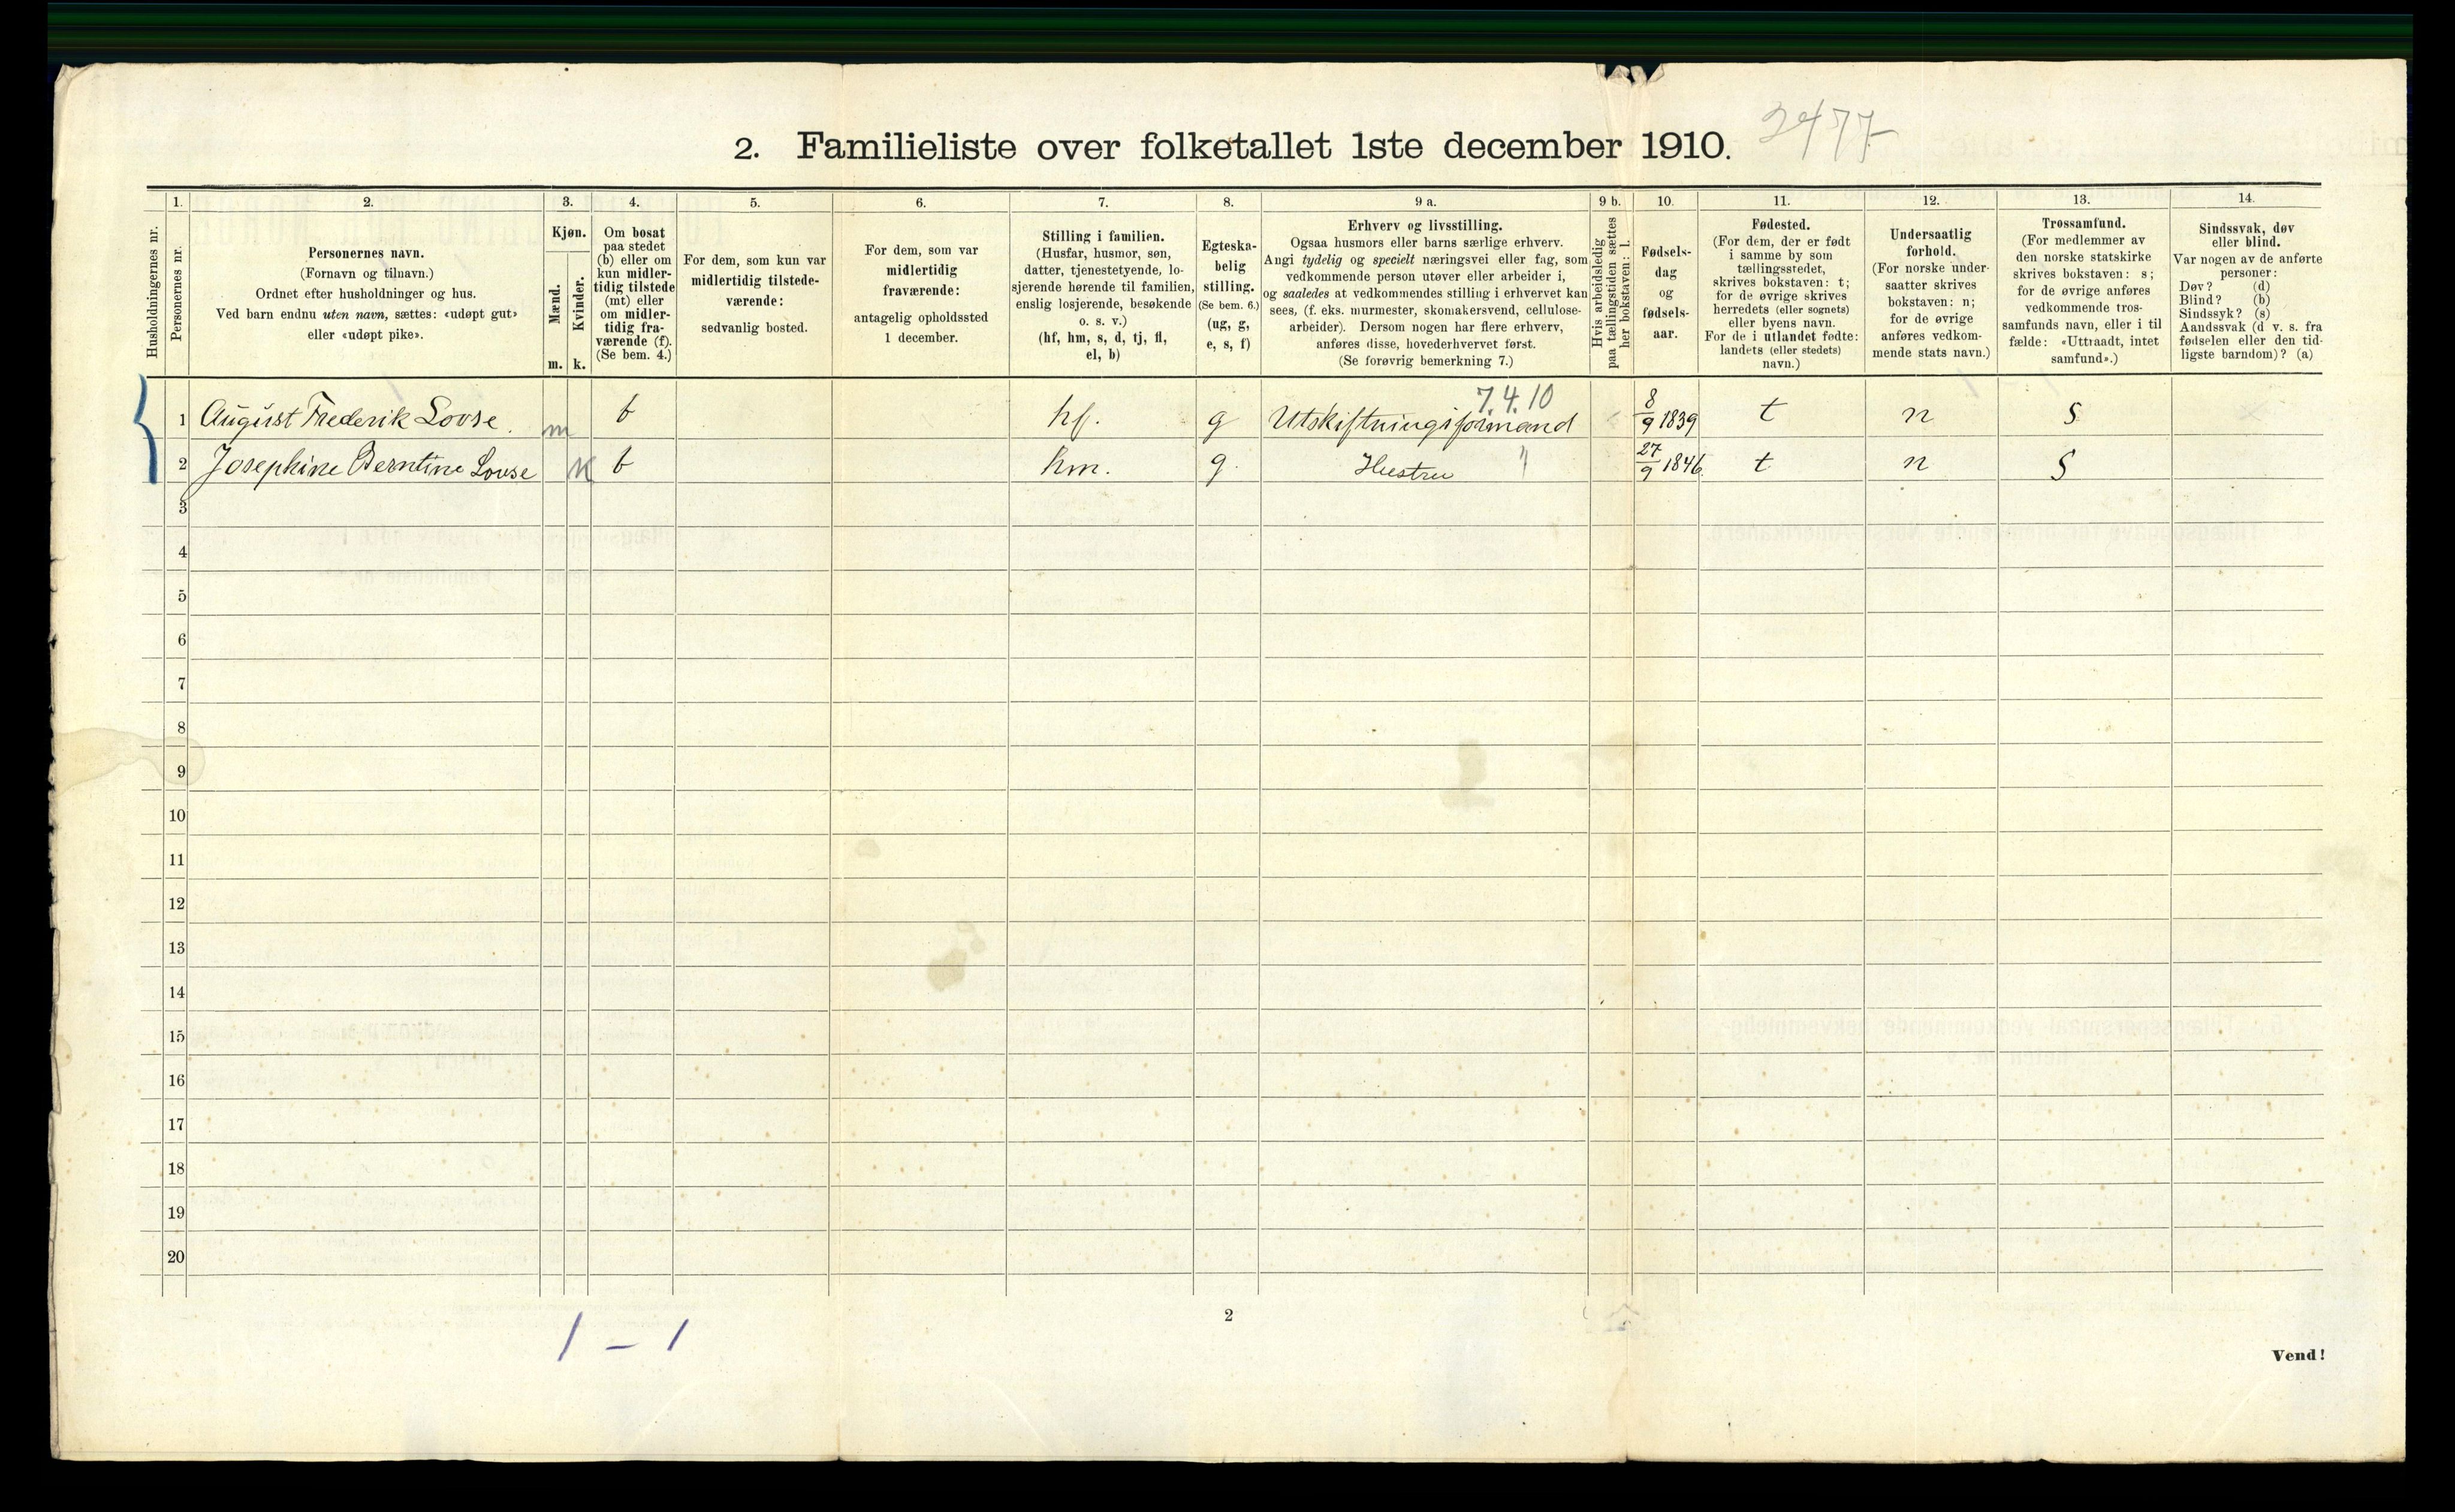 2477
2. Familieliste over folketallet 1ste december 1910.
Husholdningernes nr.
1.
Personernes nr.
2.
Personernes navn.
(Fornavn og tilnavn.)
Ordnet efter husholdninger og hus.
Ved barn endnu uten navn, sættes: «udøpt gut»
eller «udøpt pike».
3.
Kjøn.
Mænd.
Kvinder.
m. k.
4.
Om bosat
paa stedet
(b) eller om
kun midler-
tidig tilstede
(mt) eller
om midler-
tidig fra-
værende (f).
(Se bem. 4.)
5.
For dem, som kun var
midlertidig tilstede-
værende:
sedvanlig bosted.
6.
For dem, som var
midlertidig
fraværende:
antagelig opholdssted
1 december.
7.
Stilling i familien.
(Husfar, husmor, søn,
datter, tjenestetyende, lo-
sjerende hørende til familien,
enslig losjerende, besøkende
o. s. v.)
(hf, hm, s, d, tj, fl,
el, b)
8.
Egteska-
belig
stilling.
(Se bem. 6.)
(ug, g,
e, s, f)
9 a.
Erhverv og livsstilling.
Ogsaa husmors eller barns særlige erhverv.
Angi tydelig og specielt næringsvei eller fag, som
vedkommende person utøver eller arbeider i,
og saaledes at vedkommendes stilling i erhvervet kan
sees, (f. eks. murmester, skomakersvend, cellulose-
arbeider). Dersom nogen har flere erhverv,
anføres disse, hovederhvervet først.
(Se forøvrig bemerkning 7.)
9 b.
Hvis arbeidsledig
paa tællingstiden sættes
her bokstaven: l.
10.
Fødsels-
dag
og
fødsels-
aar.
11.
Fødested.
(For dem, der er født
i samme by som
tællingsstedet,
skrives bokstaven: t;
for de øvrige skrives
herredets (eller sognets)
eller byens navn.
For de i utlandet fødte:
landets (eller stedets)
navn.)
12.
Undersaatlig
forhold.
(For norske under-
saatter skrives
bokstaven: n;
for de øvrige
anføres vedkom-
mende stats navn.)
13.
Trossamfund.
(For medlemmer av
den norske statskirke
skrives bokstaven: s;
for de øvrige anføres
vedkommende tros-
samfunds navn, eller i til
fælde: «Uttraadt, intet
samfund».)
14.
Sindssvak, døv
eller blind.
Var nogen av de anførte
personer:
Døv? (d)
Blind? (b)
Sindssyk? (s)
Aandssvak (d v. s. fra
fødselen eller den tid-
ligste barndom)? (a)
7.4.10
1 August Frederik Lovse. m b hf. g Utskiftningsformand 8/9 1839 t n S
2 Josephine Berntine Lovse k b hm. g. Hustru " 27/9 1846. t n S
3
4
5
6
7
8
9
10
11
12
13
14
15
16
17
18
19
20
2
1 – 1
Vend!